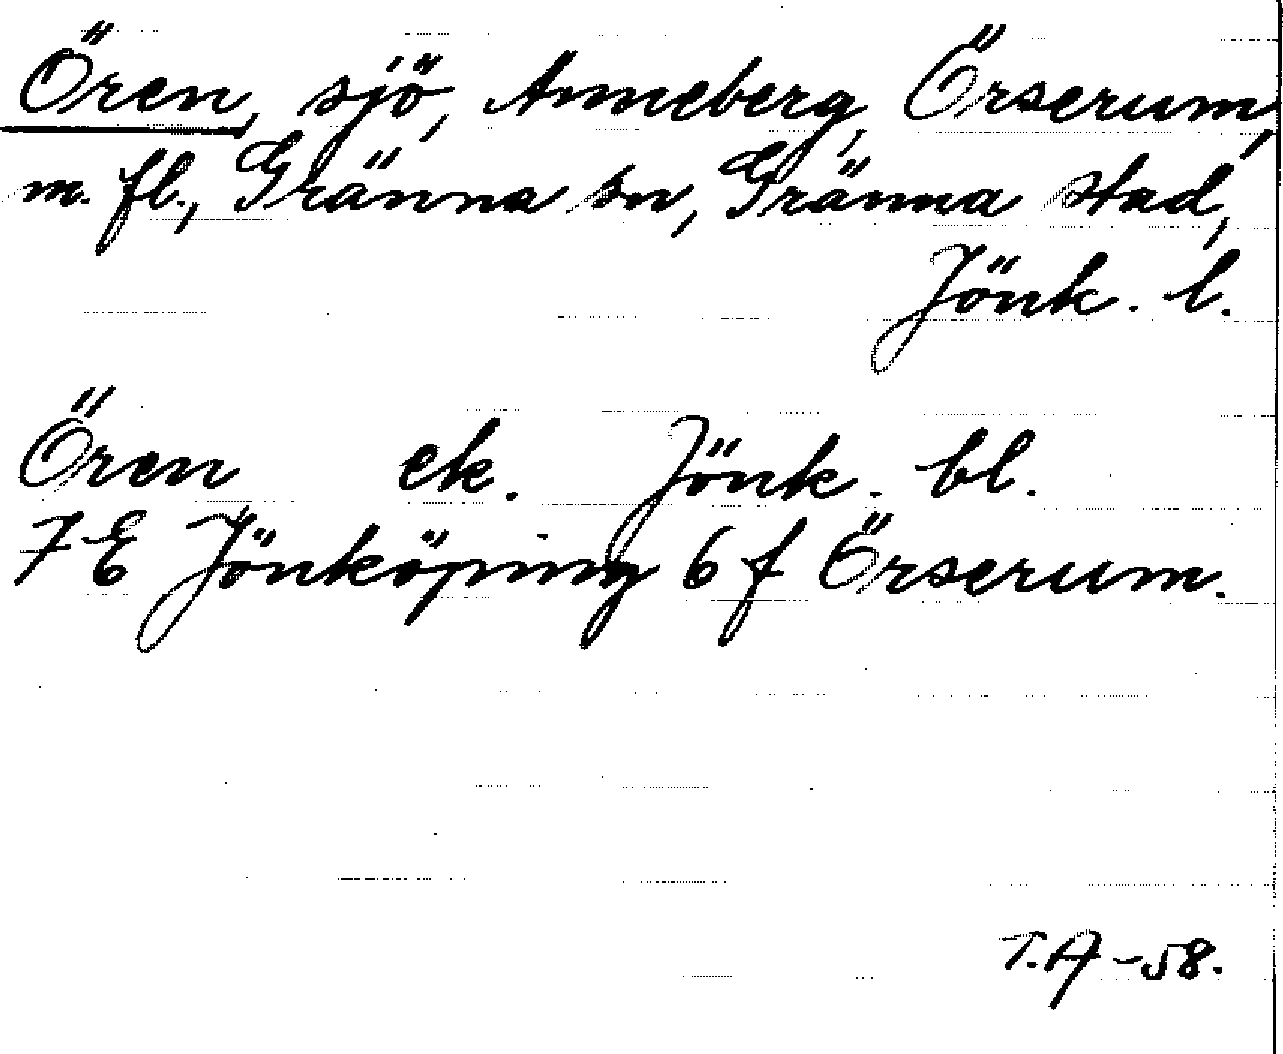 Ören, sjö, Anneberg, Örserum,
m. fl., Gränna sn, Gränna stad,
Jönk. l.
Ören ek. Jönk. bl.
7 E Jönköping 6 f Örserum.
T.A -58.